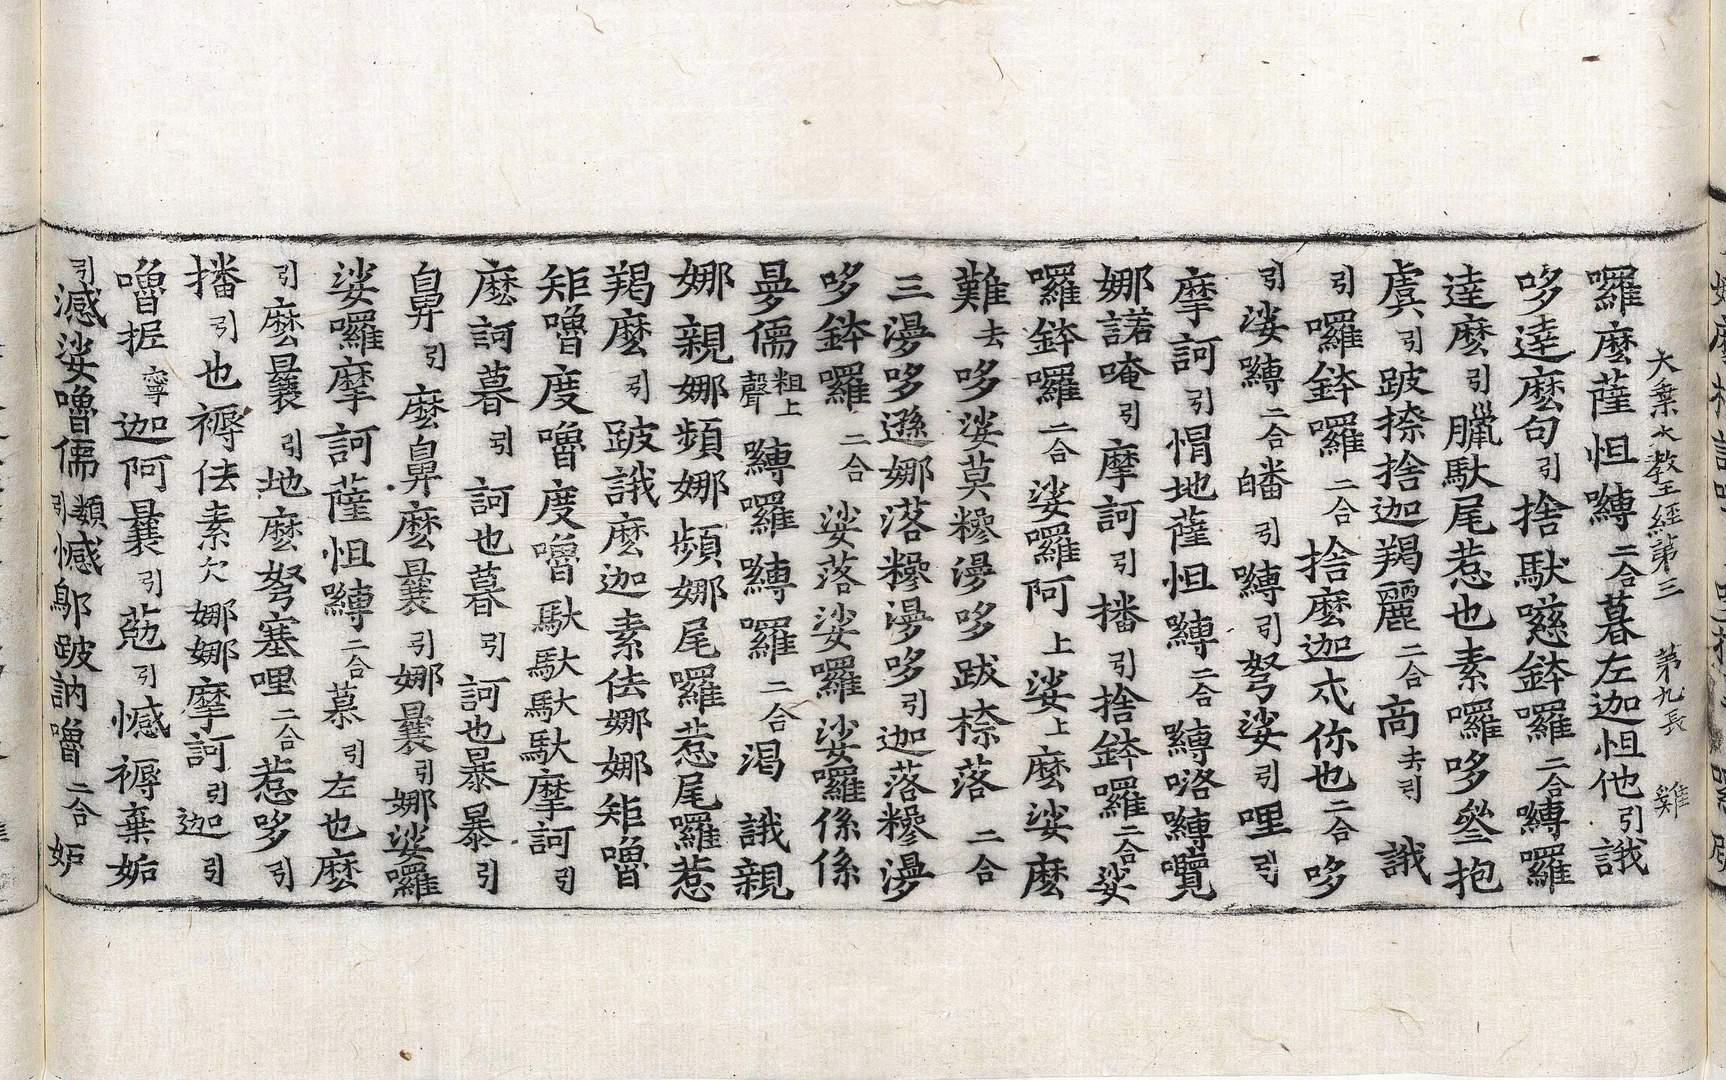 大乘大教王經第三 第九長 雞
囉麼薩怛嚩二合暮左迦怛他引誐
哆達麼句引捨馱慈鉢囉二合嚩囉
達麼引臘馱尾惹也素囉哆參抱
虞引跛捺捨迦羯麗二合商去引誐
引囉鉢囉二合捨麼迦忒你也二合哆
引娑嚩二合皤引嚩引努娑引哩引
摩訶引惹地薩怛嚩二合嚩咯嚩囕
娜諾唵引摩訶引播引捨鉢囉二合娑
囉鉢囉二合娑囉阿上娑上麼娑麼
難去哆娑莫糝漫哆跋捺落二合
三漫哆遜娜落糝漫哆引迦落糝漫
哆鉢囉二合娑落娑囉娑囉係係
曼儒粗上聲嚩囉嚩囉二合渴誐親
娜親娜頻娜頻娜尾囉惹尾囉惹
羯麼引跛誐麼迦素佉娜娜矩嚕
矩嚕度嚕度嚕馱馱馱馱摩訶引
麼訶暮引訶也暮引訶也暴暴引
鼻引麼鼻麼曩引娜曩引娜娑囉
娑囉摩訶薩怛嚩二合慕引左也麼
引麼曩引地麼努塞哩二合惹哆引
播引也褥佉素欠娜娜摩訶引迦引
嚕抳寧迦阿曩引菍引憾褥棄姤
引憾娑嚕儒引類憾鄔跛訥嚕二合妒